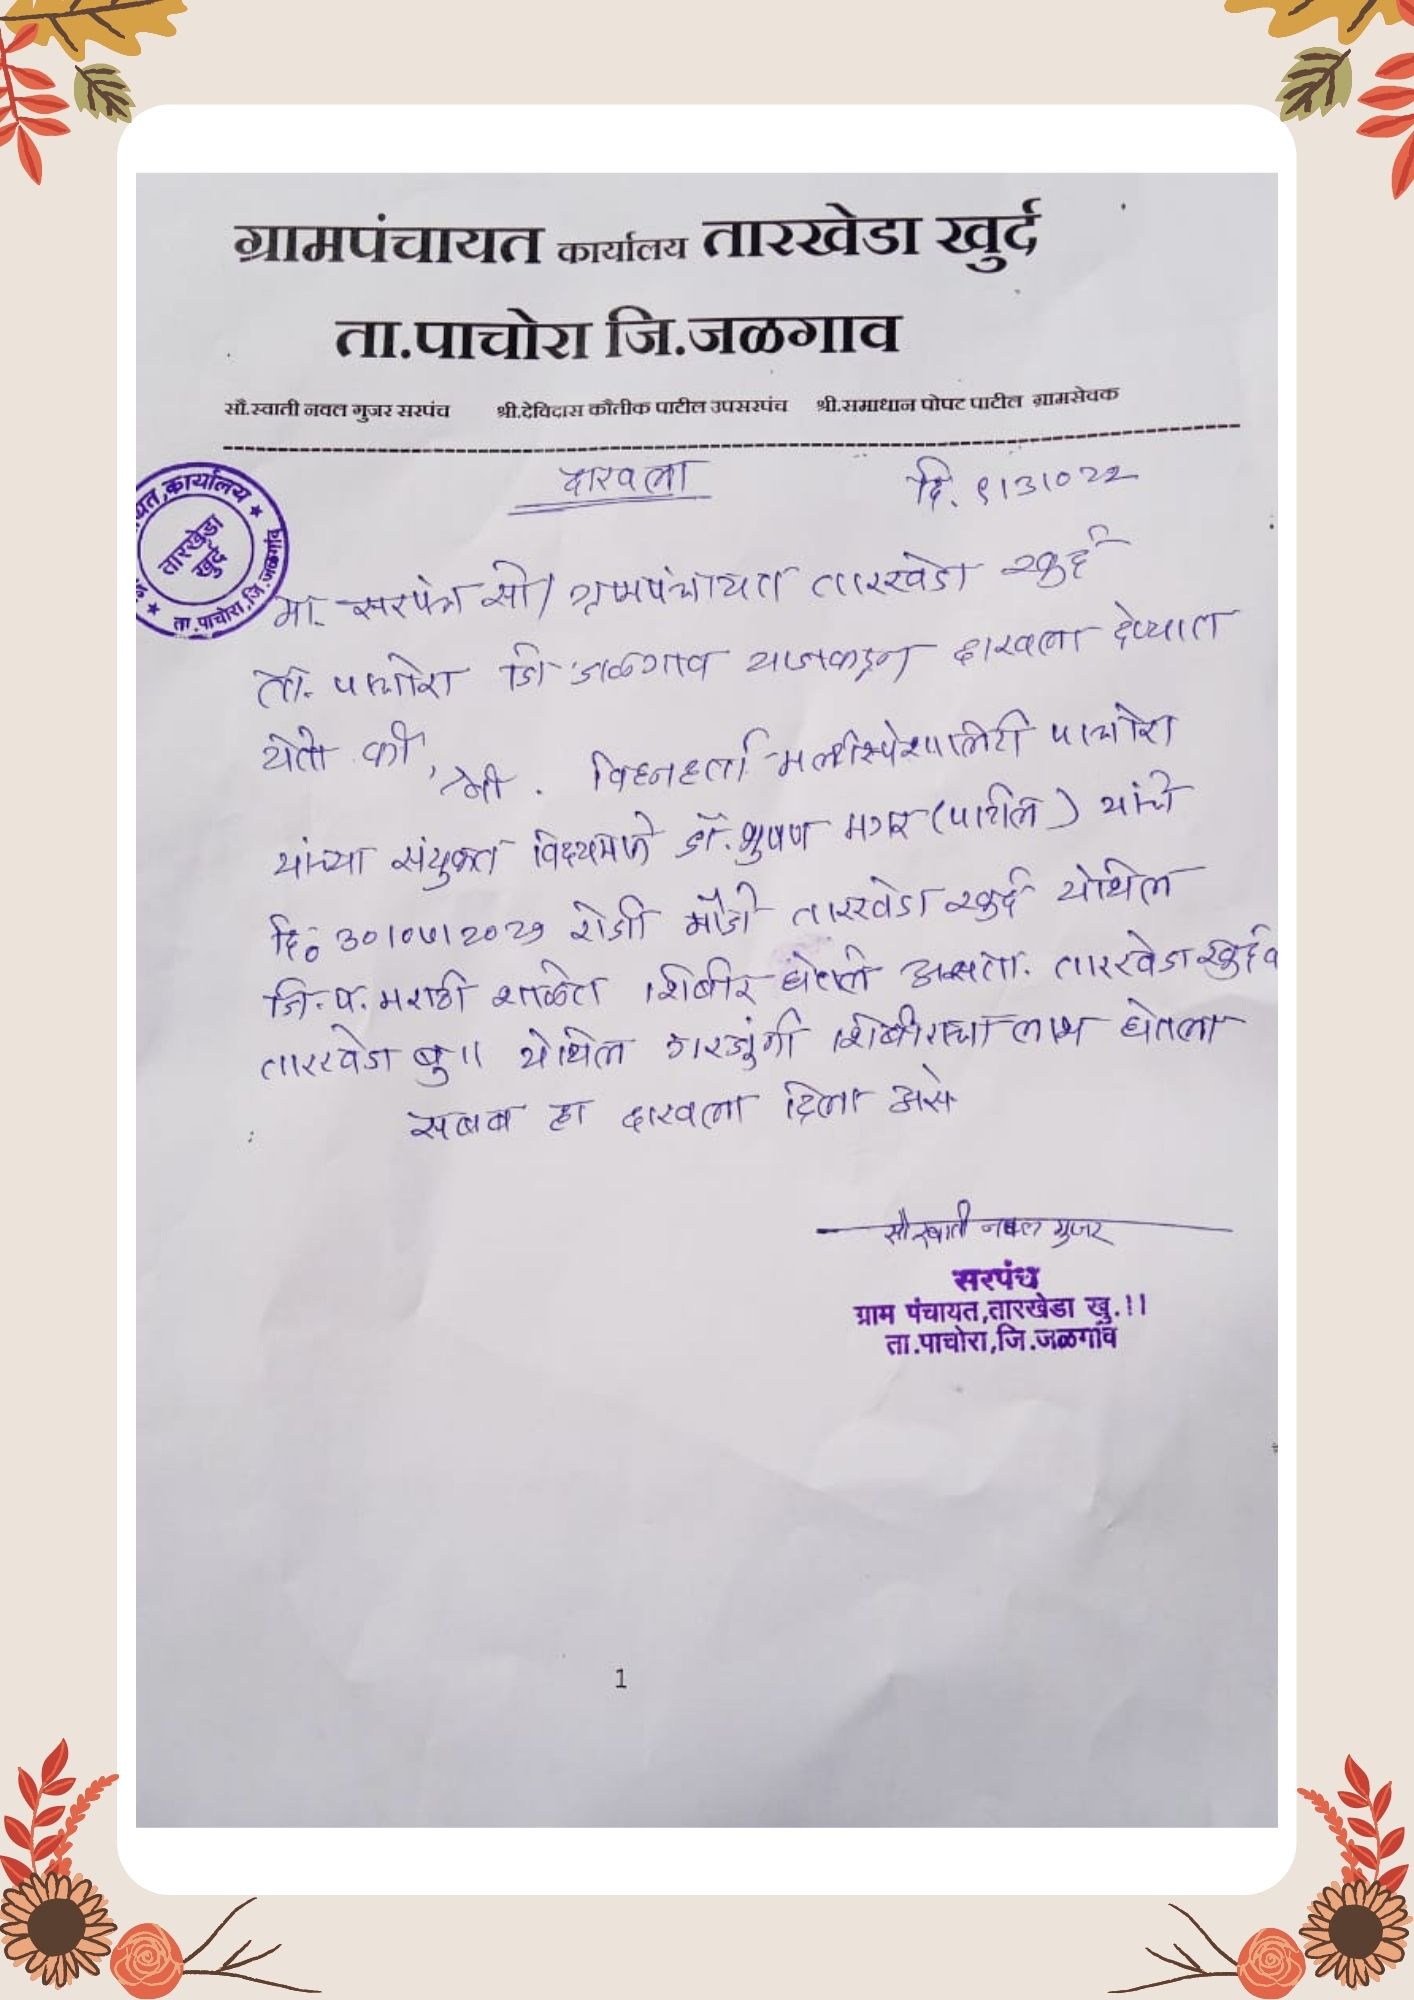 ग्रामपंचायत कार्यालय तारखेडा खुर्द
ता.पाचोरा जि.जळगाव
सौ.स्वाती नवल गुजर सरपंच श्री.देविदास कौतीक पाटील उपसरपंच श्री.समाधान पोपट पाटील ग्रामसेवक
दाखला
दि. ९।३।०२२
यत,कार्यालय
तारखेडा
खुर्द
ता.पाचोरा,जि.जळगांव
मा. सरपंच सो। ग्रामपंचायत तारखेडा खुर्द
ता. पाचोरा जि जळगाव याजकडून दाखला देण्यात
येतो की, श्री. विघ्नहर्ता मल्टीस्पेशालिटी पाचोरा
यांच्या संयुक्त विद्यमाने डॉ. भुषण मगर (पाटील) यांचे
दि० ३०।०५।२०२१ रोजी मौजे तारखेडा खुर्द येथिल
जि.प.मराठी शाळेत शिबीर घेतले असता. तारखेडा खुर्द व
तारखेडा बु॥ येथिल गरजुंनी शिबीराचा लाभ घेतला
सबब हा दाखला दिला असे
सौ स्वाती नवल गुजर
सरपंच
ग्राम पंचायत,तारखेडा खु.।।
ता.पाचोरा,जि.जळगांव
1